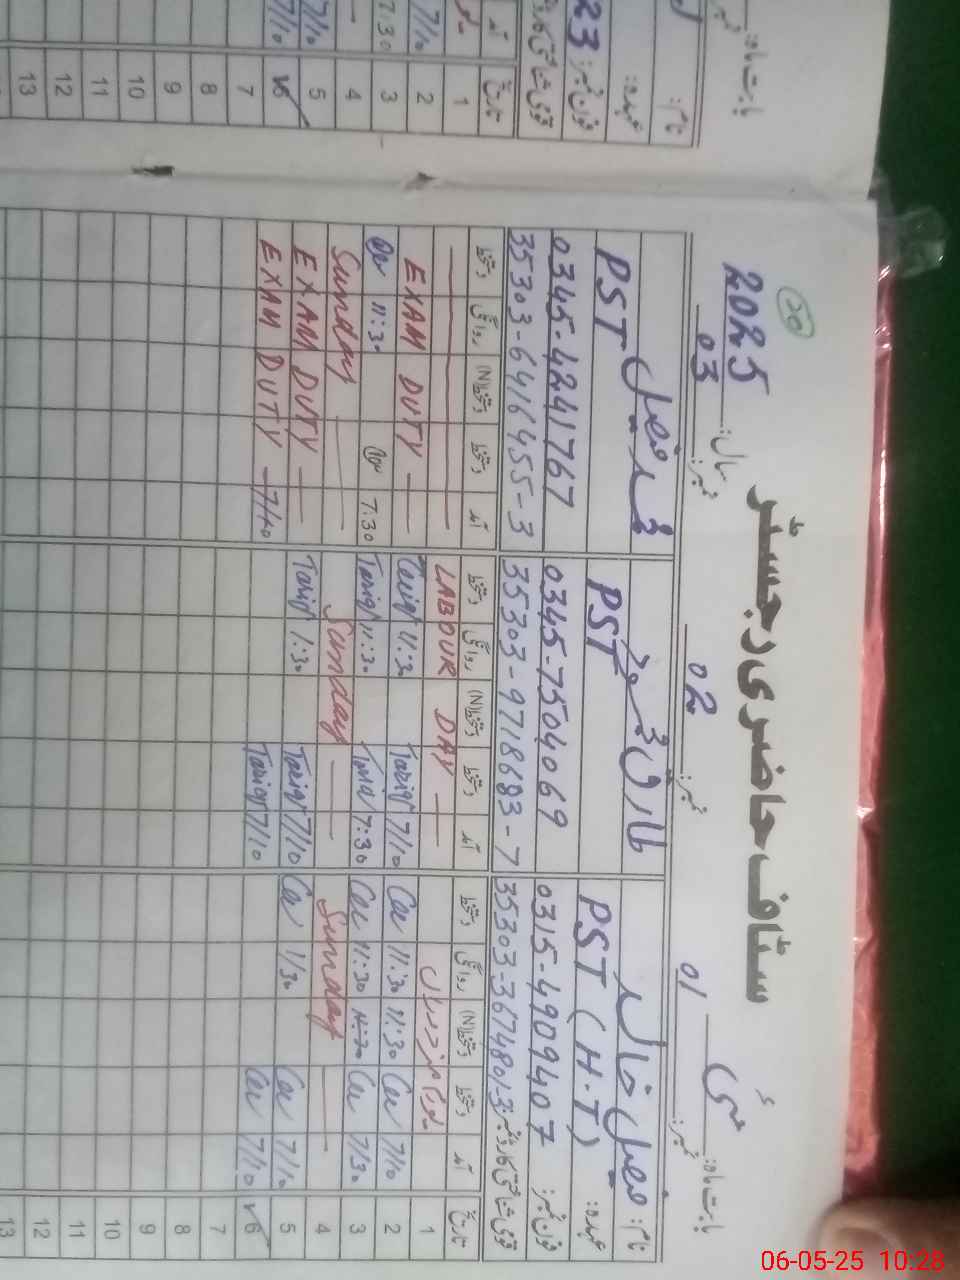 سٹاف حاضری رجسٹر
بابت ماہ: مئی سال: 2025
20
نمبر: 01 نمبر: 02 نمبر: 03
نام: فیصل خالد طارق محمود محمد فیصل
عہدہ: PST (H.T) PST PST
فون نمبر: 0315-4909407 0345-7504069 0345-4241767
قومی شناختی کارڈ نمبر: 35303-3674801-3 35303-9718683-7 35303-6416455-3
تاریخ آمد دستخط دستخط (N) روانگی دستخط آمد دستخط دستخط (N) روانگی دستخط آمد دستخط دستخط (N) روانگی دستخط
1 یکم مزدوراں LABOUR DAY
2 7/10 11:30 11:30 7/10 Tariq 11:30 Tariq EXAM DUTY
3 7/30 11:30 11:30 7:30 Tariq 11:30 Tariq 7:30 11:30
4 Sunday Sunday Sunday
5 7/10 1/30 7/10 Tariq 1:30 Tariq EXAM DUTY
6 7/10 7/10 Tariq 7/10 EXAM DUTY
7
8
9
10
11
12
13
بابت ماہ:
نام:
عہدہ:
فون نمبر: 23
تاریخ آمد
1
2 7/10
3 7:30
4
5 7/10
6 7/10
7
8
9
10
11
12
13
06-05-25 10:28